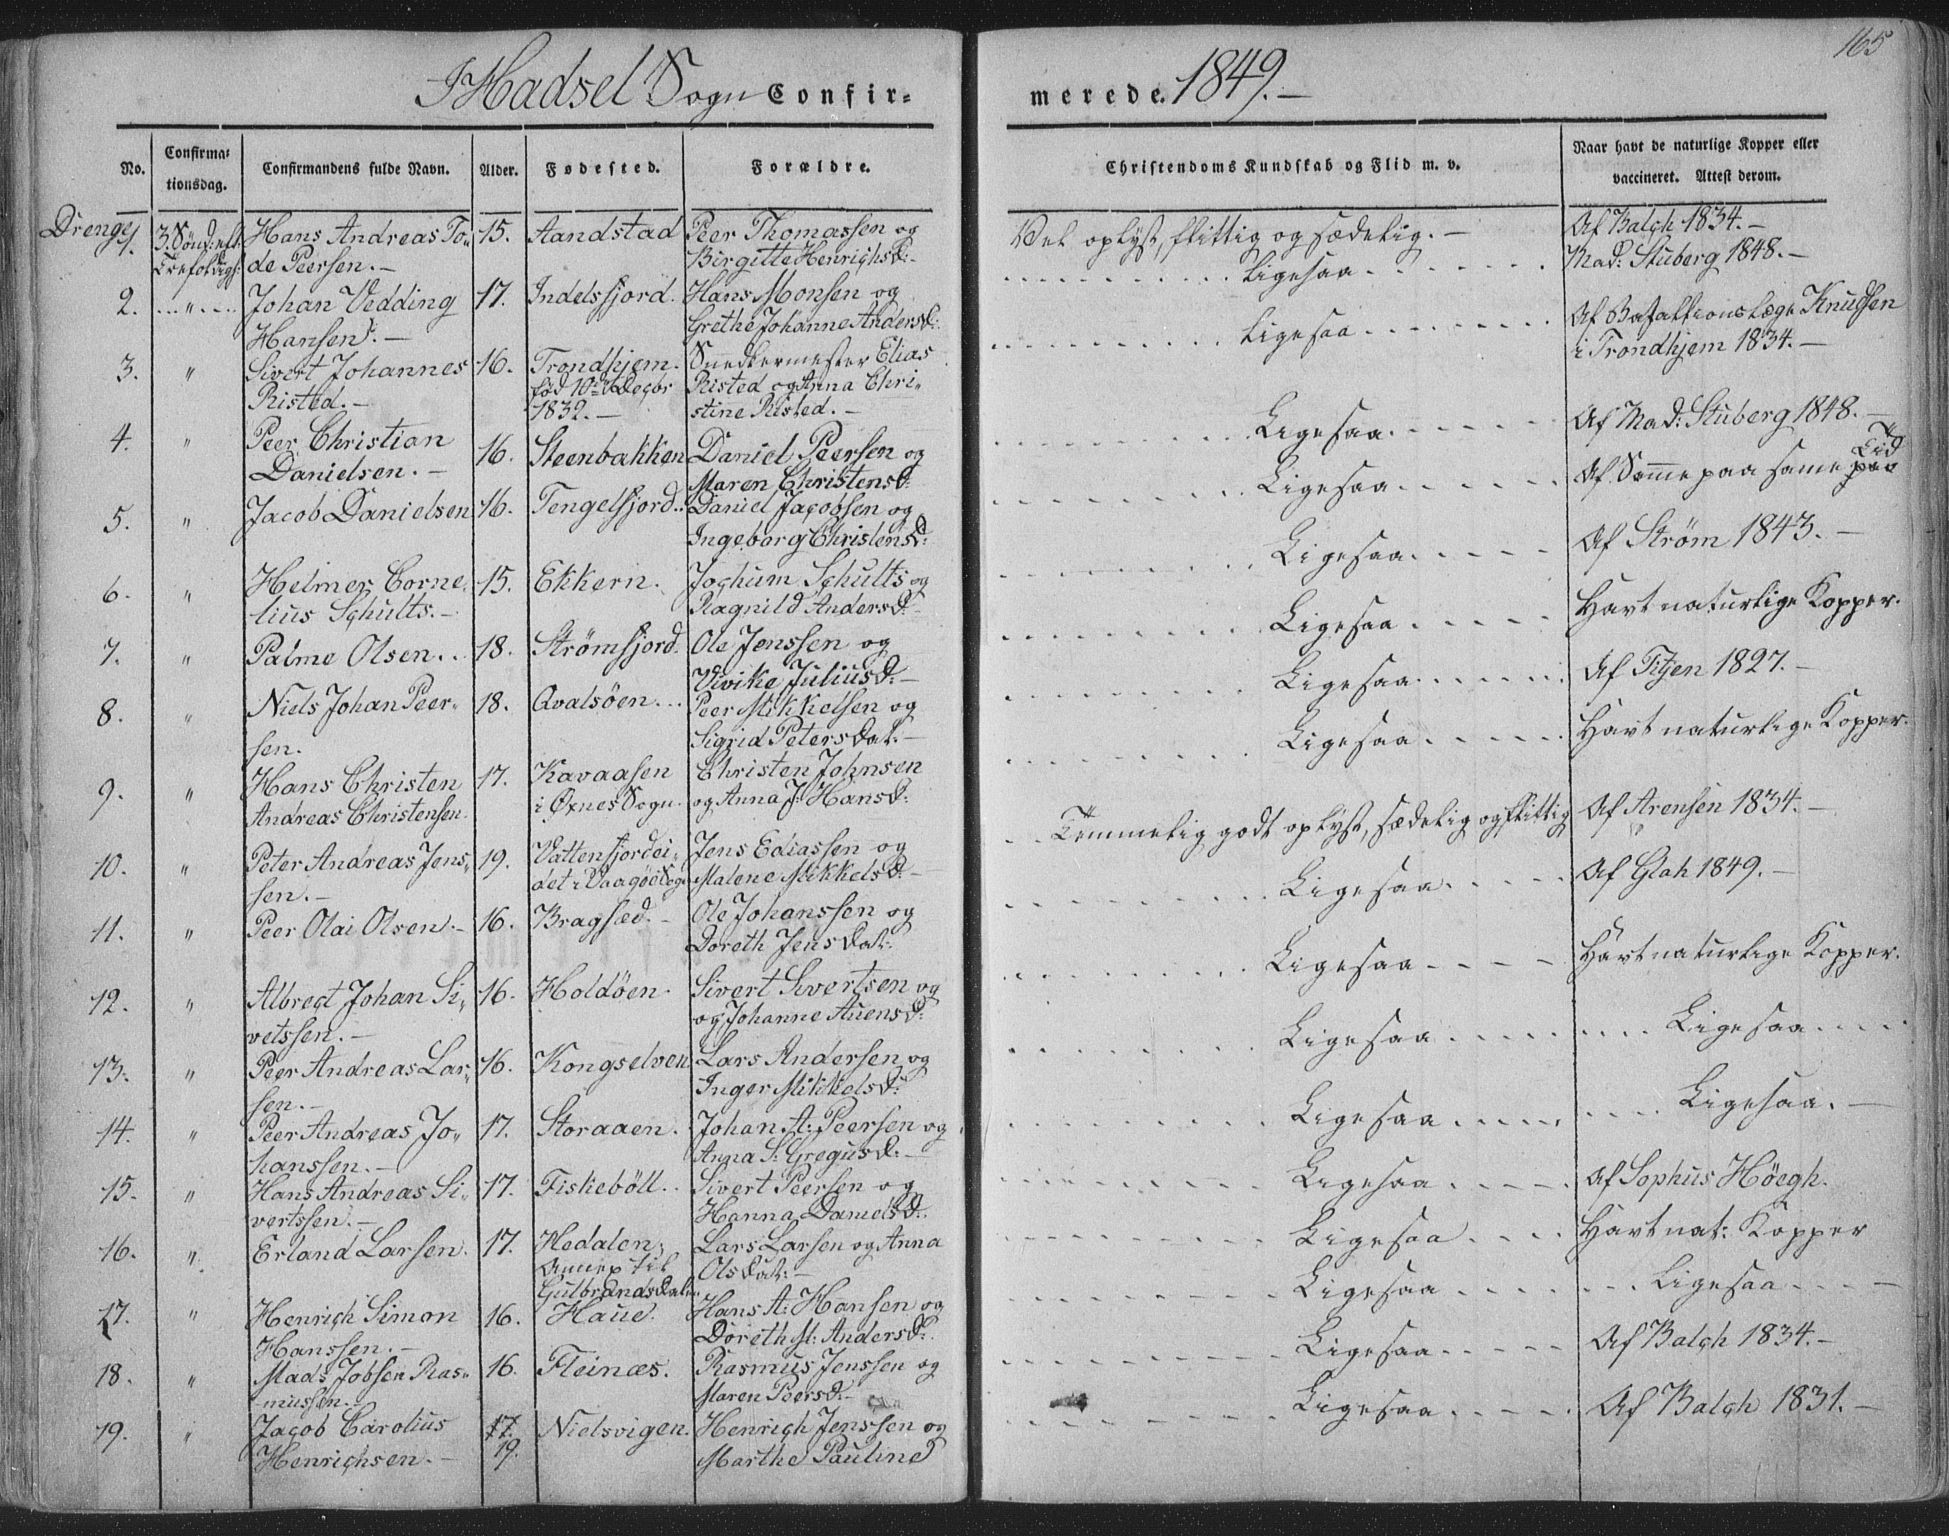 I Hadsel Sogn Confir-
merede. 1849.-
165
No.
Confirma-
tionsdag.
Confirmandens fulde Navn.
Alder.
Fødested.
Forældre.
Christendoms Kundskab og Flid m. v.
Naar havt de naturlige Kopper eller
vaccineret. Attest derom.
Drenge
1. 3. Sönd: eft: Hans Andreas To- 15. Aandstad Peer Thomassen og
Trefoldigh: de Peersen.- Birgitte HenrichsD:-
Vel oplyst, flittig og sædelig.- Af Balch 1834.-
2. " Johan Vedding 17. Indelsfjord. Hans Monsen og
Hansen.- Grethe Johanne AndersD:
Ligesaa Mad: Stuberg 1848.-
3. " Sivert Johannes 16. Trondhjem. Snedkermester Elias
Risted.- fød 10de Decbr Risted og Anna Chri-
1832.- stine Risted.-
Ligesaa Af Bataillonslæge Knudsen
i Trondhjem 1834.-
4. " Peer Christian 16. Steenbakken Daniel Peersen og
Danielsen.- Maren ChristensD:
Ligesaa Af Mad: Stuberg 1848.-
5. " Jacob Danielsen 16. Tengelfjord. Daniel Jacobsen og
Ingeborg ChristensD:
Ligesaa Af Samme paa same Tid
6. " Helmer Corne- 15. Ekkern. Jochum Schults og
lius Schults.- Ragnild AndersD:-
Ligesaa Af Strøm 1843.-
7. " Palme Olsen.. 18. Strømfjord. Ole Jenssen og
Vivike JuliusD:-
Ligesaa Havt naturlige Kopper.
8. " Niels Johan Peer- 18. Qvalsöen... Peer Mikkelsen og
sen. Sigrid Petersdat:-
Ligesaa Af Titjen 1827.-
9. " Hans Christen 17. Kavaasen Christen Johnsen
Andreas Christensen. i Øxnes Sogn. og Anna J: HansD:
Ligesaa Havt naturlige Kopper.
10. " Peter Andreas Jens- 19. Vattenfjordei- Jens Ediassen og
sen.- det i Vaagöe Sogn Malene MikkelsD:-
Temmelig godt oplyst, sædelig og flittig Af Arensen 1834.-
11. " Peer Olai Olsen.- 16. Bragsæd.- Ole Johanssen og
Doreth Jensdat:
Ligesaa Af Glah 1849.-
12. " Albregt Johan Si- 16. Holdöen. Sivert Sivertsen og
vetssen.- og Johanne AuensD:
Ligesaa Havt naturlige Kopper.
13. " Peer Andreas Lar- 16. Kongselven. Lars Andersen og
sen.- Inger MikkelsD:
Ligesaa Ligesaa
14. " Peer Andreas Jo- 17. Storaaen. Johan A: Peersen og
hanssen.- Anna S: GregusD:-
Ligesaa Ligesaa.-
15. " Hans Andreas Si- 17. Fiskeböll. Sivert Peersen og
vertssen.- Hanna DanielsD:
Ligesaa Af Sophus Höegh.
16. " Erland Larsen. 17. Hedalen, Lars Larsen og Anna
Annex til Olsdat:-
Gulbrandsdalen
Ligesaa Havt nat: Kopper
17. " Henrich Simon 16. Haue. Hans A: Hansen og
Hanssen.- Doreth M: AndersD:
Ligesaa Ligesaa
18. " Mads Jobsen Ras- 16. Fleinæs. Rasmus Jenssen og
mussen.- Maren PeersD:-
Ligesaa Af Balch 1834.-
19. " Jacob Carolius 17. Nielsvigen. Henrich Jenssen og
Henrichsen.- 19. Marthe Pauline
Ligesaa Af Balch 1831.-